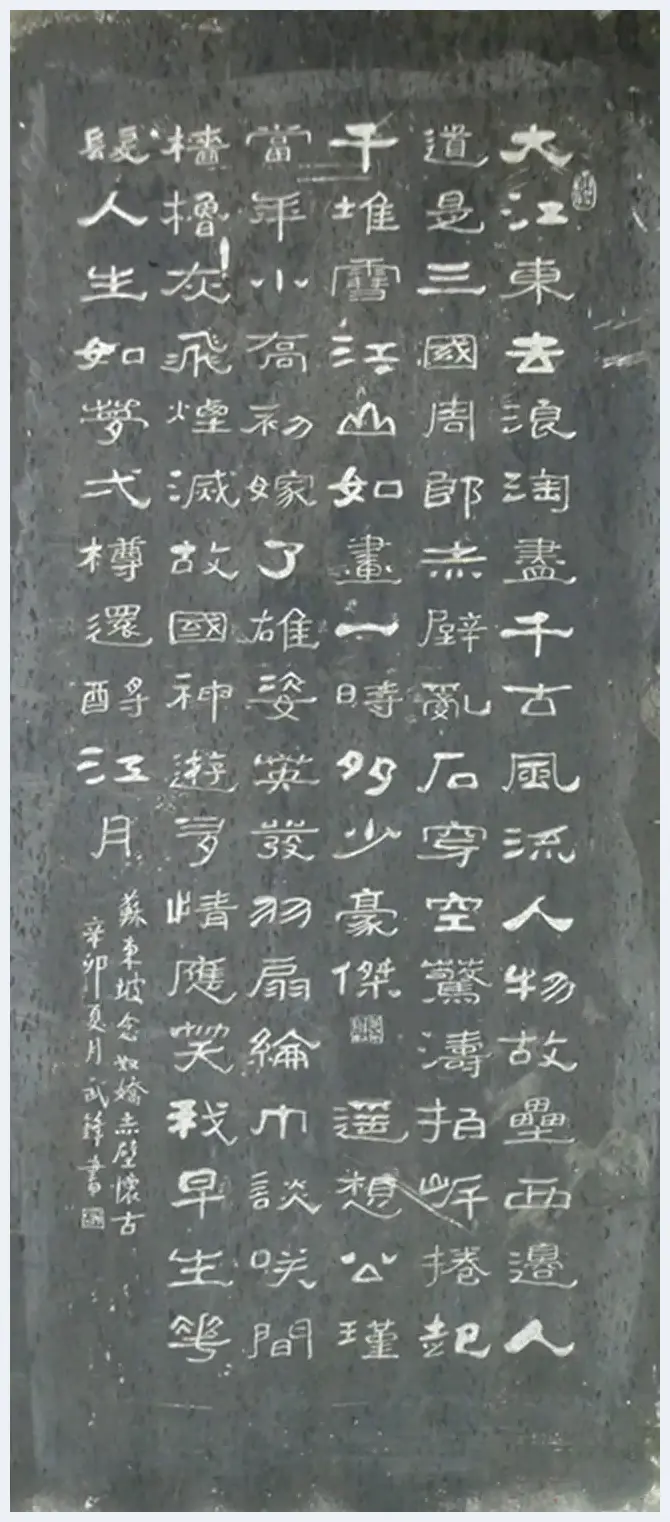 大江東去浪淘盡千古風流人物故壘西邊人
道是三國周郎赤壁亂石穿空驚濤拍岸捲起
千堆雪江山如畫一時多少豪傑 遥想公瑾
當年小喬初嫁了雄姿英發羽扇綸巾談咲間
檣櫓灰飛煙滅故國神遊多情應笑我早生華
髮人生如夢弌樽還酹江月
蘇東坡念奴嬌赤壁懷古
辛卯夏月武鋒書